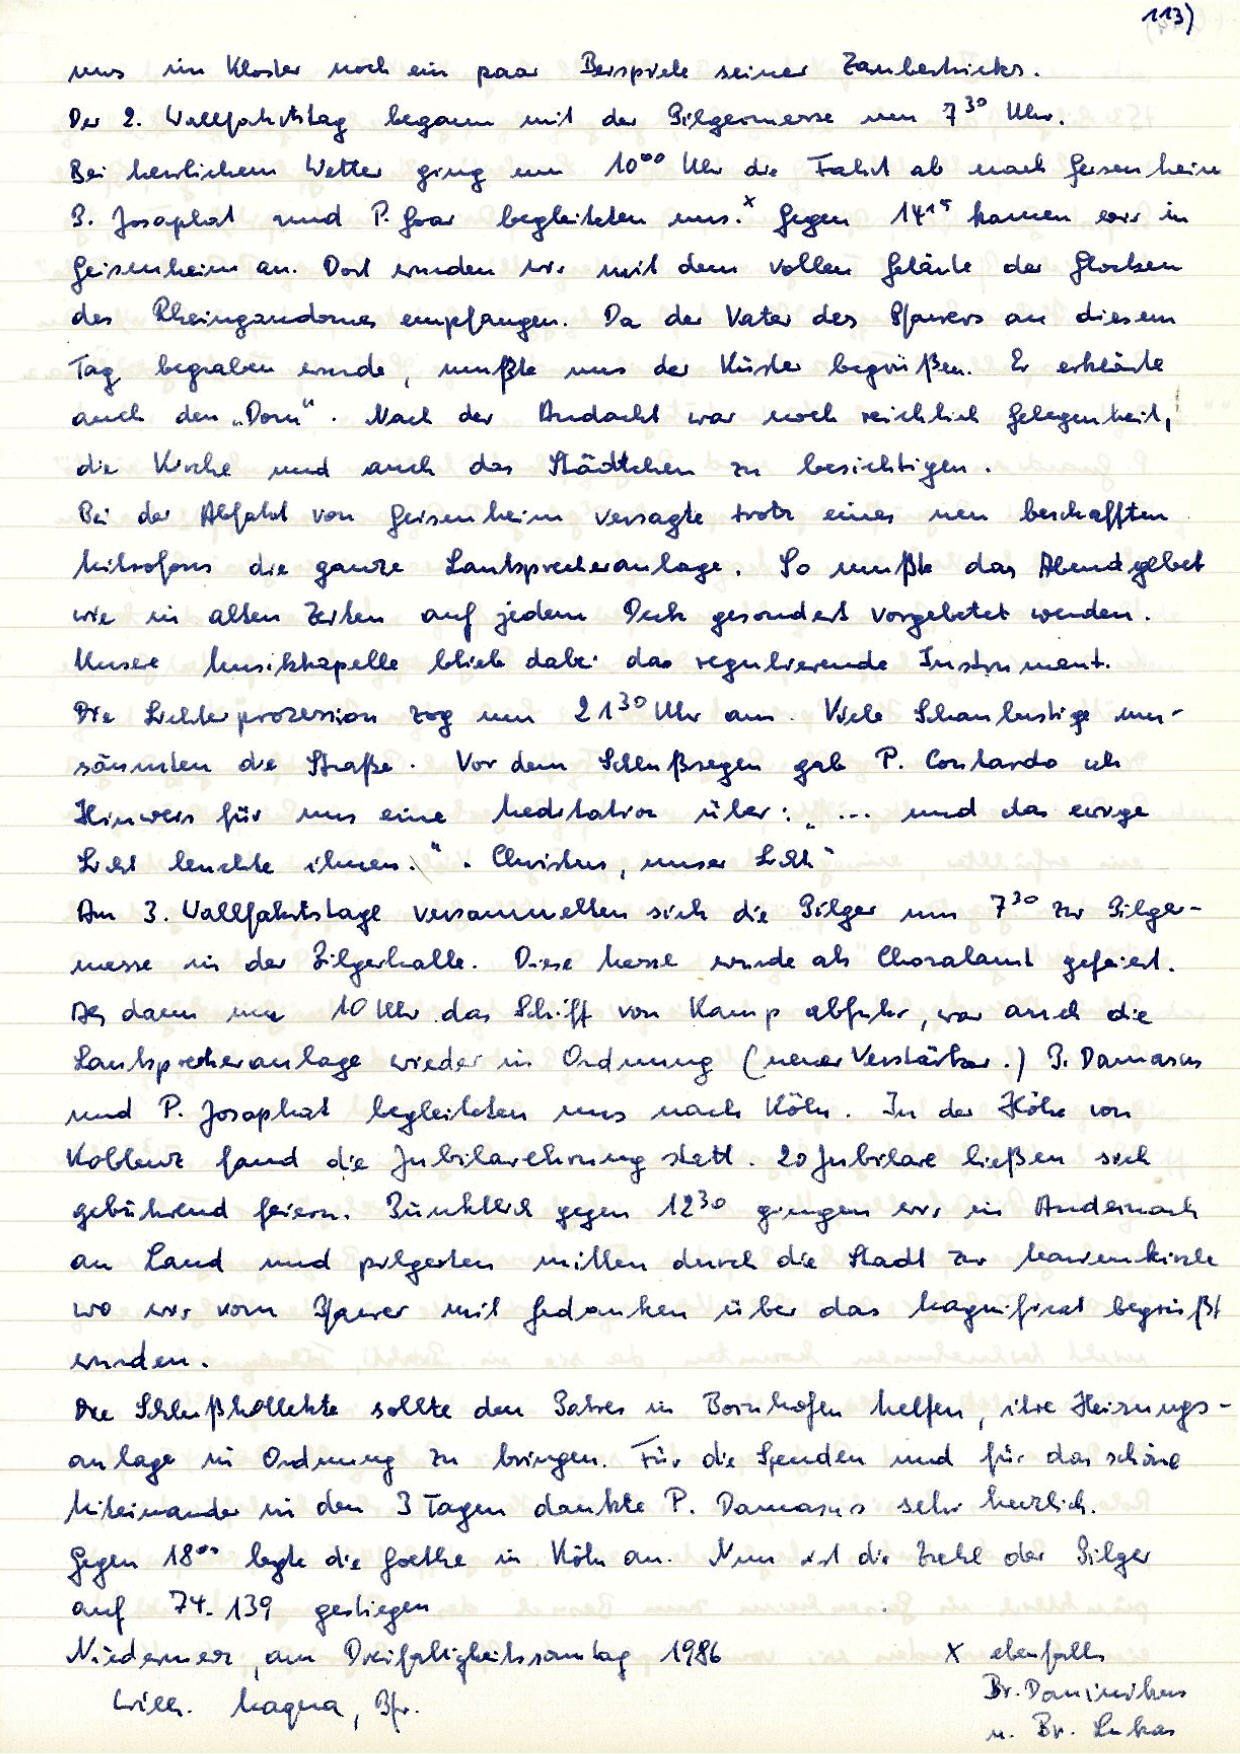 113)
uns im Kloster noch ein paar Beispiele seiner Zaubertricks.
Der 2. Wallfahrtstag begann mit der Pilgermesse um 7³⁰ Uhr.
Bei herrlichem Wetter ging um 10⁰⁰ Uhr die Fahrt ab nach Geisenheim
P. Josaphat und P. Goar begleiteten uns.ˣ Gegen 14¹⁵ kamen wir in
Geisenheim an. Dort wurden wir mit dem vollen Geläute der Glocken
des Rheingaudomes empfangen. Da der Vater des Pfarrers an diesem
Tag begraben wurde, mußte uns der Küster begrüßen. Er erklärte
auch den „Dom“. Nach der Andacht war noch reichlich Gelegenheit,
die Kirche und auch das Städtchen zu besichtigen.
Bei der Abfahrt von Geisenheim versagte trotz eines neu beschafften
Mikrofons die ganze Lautsprecheranlage. So mußte das Abendgebet
wie in alten Zeiten auf jedem Deck gesondert vorgebetet werden.
Unsere Musikkapelle blieb dabei das regulierende Instrument.
Die Lichterprozession zog um 21³⁰ Uhr aus. Viele Schaulustige um-
säumten die Straße. Vor dem Schlußsegen gab P. als
Hinweis für uns eine Meditation über: „... und das ewige
Licht leuchte ihnen.“ . Christus, unser Licht“
Am 3. Wallfahrtstage versammelten sich die Pilger um 7³⁰ zur Pilger-
messe in der Pilgerhalle. Diese Messe wurde als Choralamt gefeiert.
Als dann um 10 Uhr das Schiff von Kamp abfuhr, war auch die
Lautsprecheranlage wieder in Ordnung (neuer Verstärker.) P. Damasus
und P. Josaphat begleiteten uns nach Köln. In der Höhe von
Koblenz fand die Jubilarehrung statt. 20 Jubilare ließen sich
gebührend feiern. Pünktlich gegen 12³⁰ gingen wir in Andernach
an Land und pilgerten mitten durch die Stadt zur Marienkirche
wo wir vom Pfarrer mit Gedanken über das Magnificat begrüßt
wurden.
Die Schlußkollekte sollte den Patres in Bornhofen helfen, ihre Heizungs-
anlage in Ordnung zu bringen. Für die Spenden und für das schöne
Miteinander in den 3 Tagen dankte P. Damasus sehr herzlich.
Gegen 18⁰⁰ legte die Goethe in Köln an. Nun ist die Zahl der Pilger
auf 74.139 gestiegen
Niedermerz, am Dreifaltigkeitssonntag 1986
Wilh. Maqua, Pfr.
X ebenfalls
Br. Dominikus
u. Br. Lukas